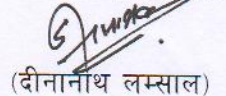 (दीनानाथ लम्साल)